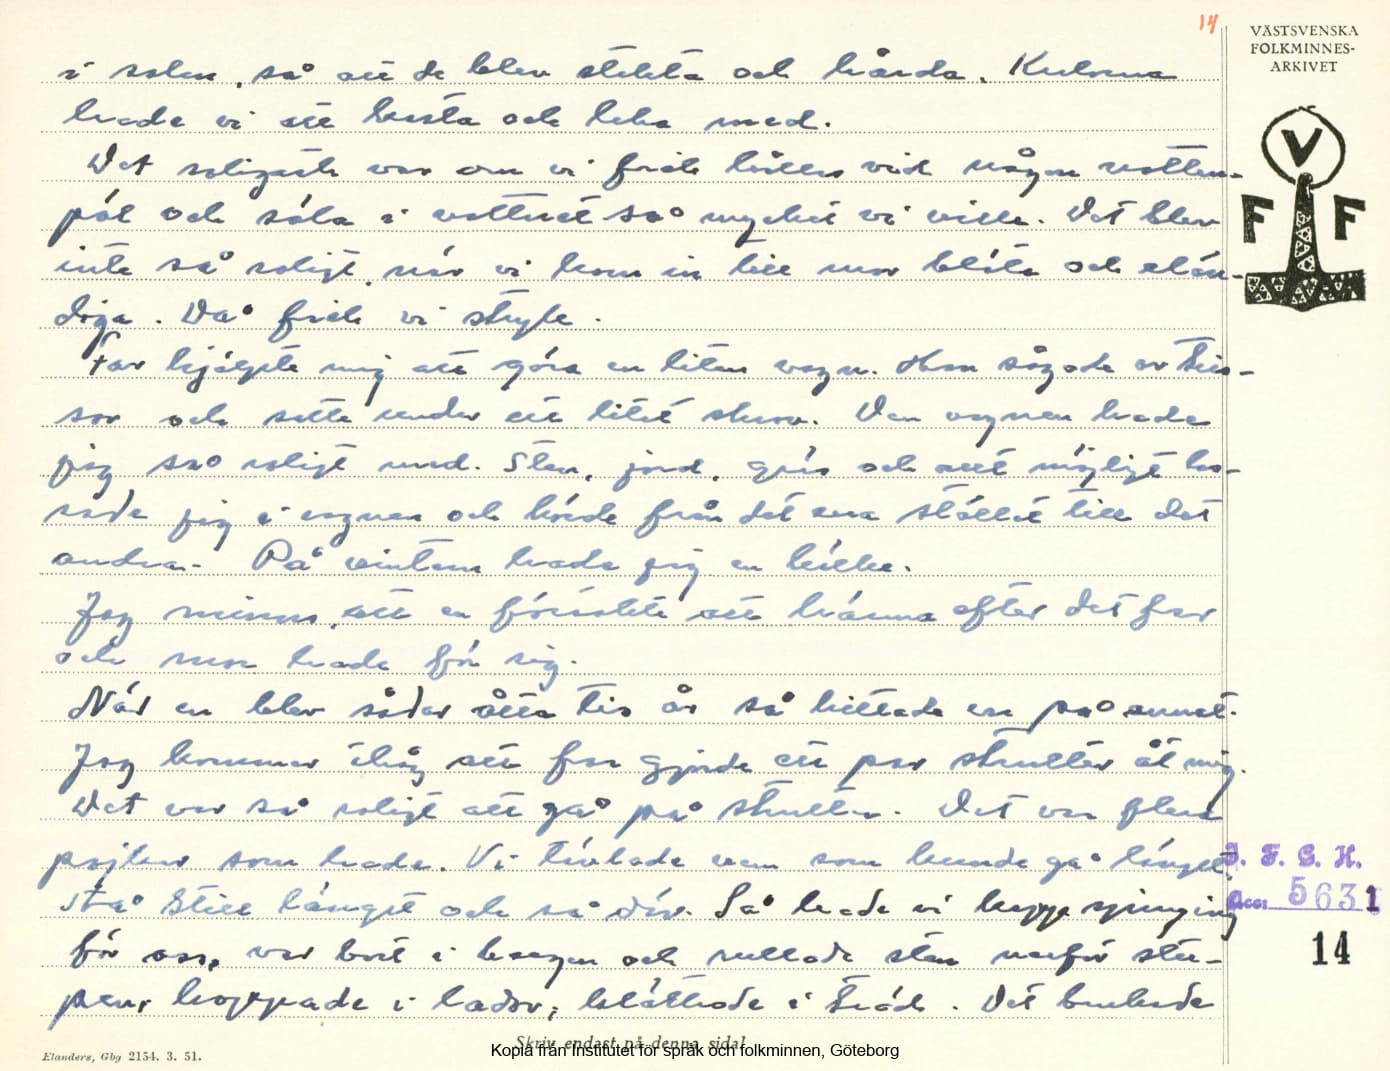 14
VÄSTSVENSKA
FOLKMINNES-
ARKIVET
V
F F
i solen, så att de blev stekta och hårda. Kulorna
hade vi att kasta och leka med.
Det roligaste var om vi fick hållas vid någon vatten-
pöl och söla i vattnet så mycket vi ville. Det blev
inte så roligt, när vi kom in till mor blöta och elän-
diga. Då fick vi stryk.
Far hjälpte mig att göra en liten vagn. Han sågade av tris-
sor och satte under ett litet skrov. Den vagnen hade
jag så roligt med. Sten, jord, grus och allt möjligt las-
sade jag i vagnen och körde från det ena stället till det
andra. På vintern hade jag en kälke.
Jag minns, att en försökte att härma efter det far
och mor hade för sig.
När en blev sådär åtta tio år så hittade en på annat.
Jag kommer ihåg att far gjorde ett par stultor åt mig.
Det var så roligt att gå på stultor. Det var flera
pojkar som hade. Vi tävlade vem som kunde gå längst,
stå still längst och så där. Så hade vi hoppspringing
för oss, var bort i bergen och rullade sten utför stu-
pen, hoppade i lador, klättrade i träd. Det brukade
I. F. G. H.
Acc: 5631
14
Skriv endast på denna sida!
Kopia från Institutet för språk och folkminnen, Göteborg
Elanders, Gbg 2154. 3. 51.